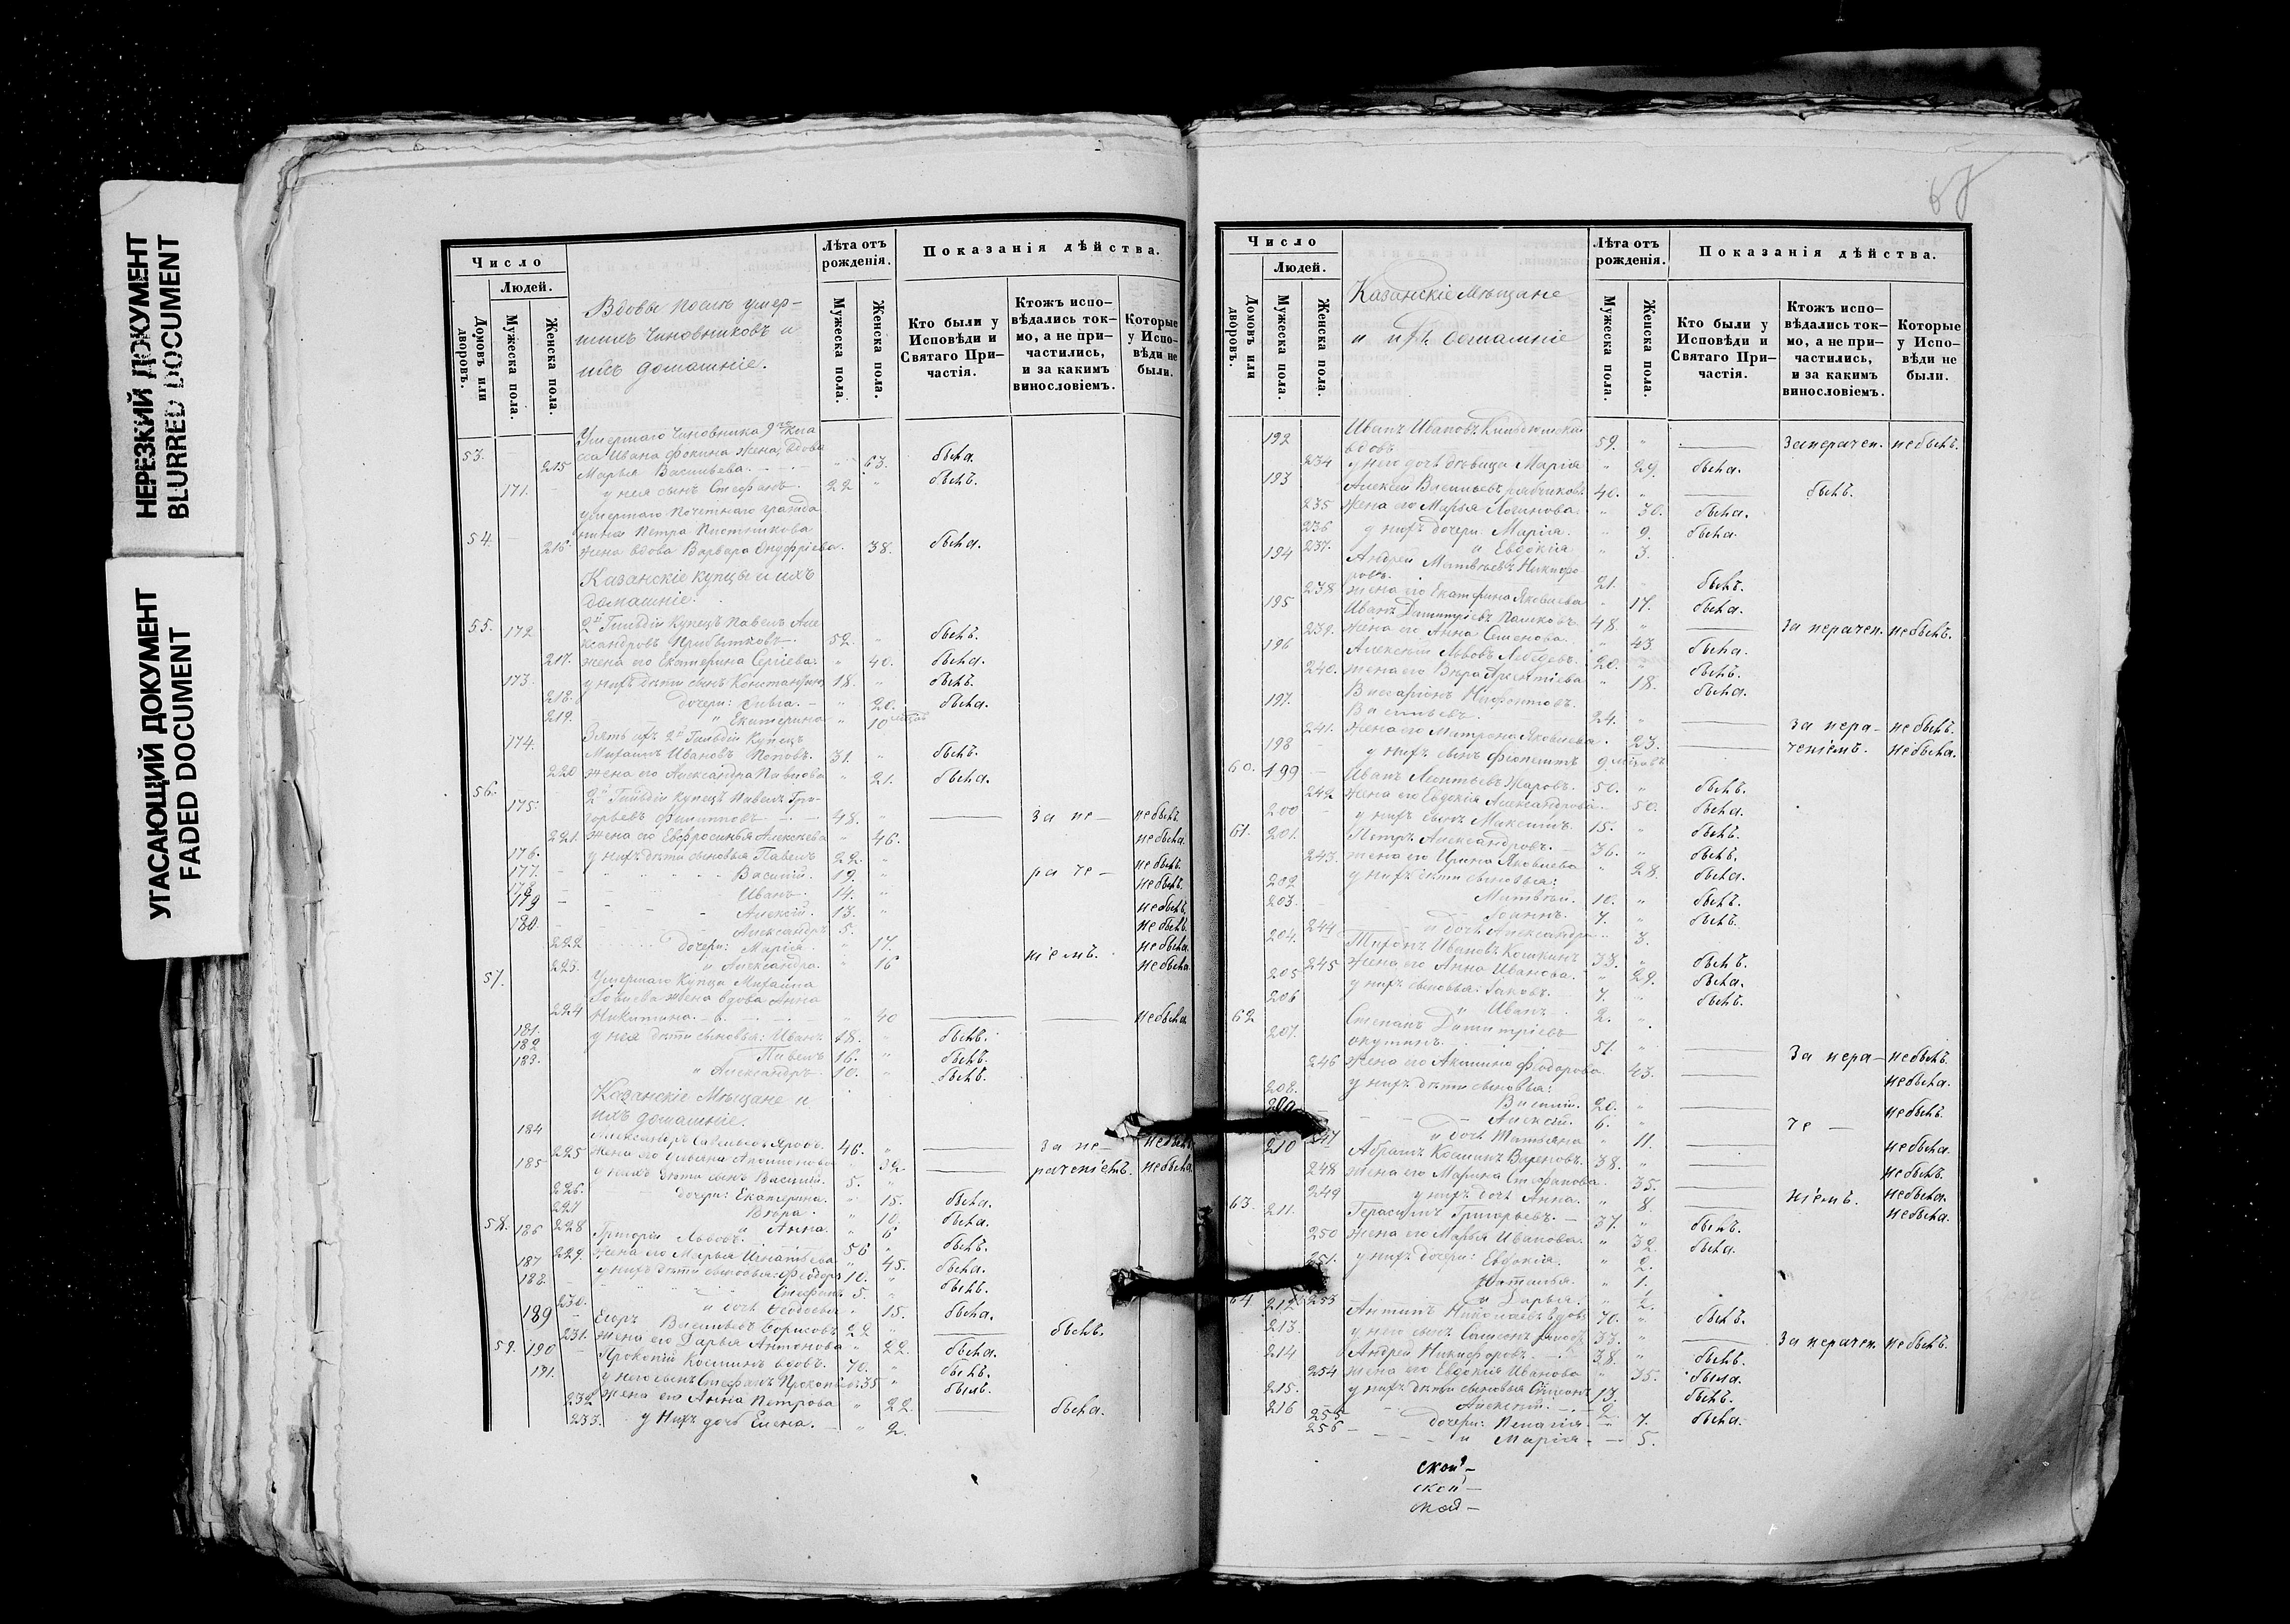 НЕРЕЗКИЙ ДОКУМЕНТ
BLURRED DOCUMENT
УГАСАЮЩИЙ ДОКУМЕНТ
FADED DOCUMENT
Число
Людей.
Домовъ или дворовъ.
Мужеска пола.
Женска пола.
Вдовы после умер-
шихъ Чиновниковъ и
ихъ домашніе.
Лѣта отъ рожденія.
Мужеска пола.
Женска пола.
Показанія дѣйства.
Кто были у Исповѣди и Святаго При-частія.
Ктожъ испо-вѣдались ток-мо, а не при-частились, и за какимъ винословіемъ.
Которые у Испо-вѣди не были.
Умершаго Чиновника 9го кла
53. сса Ивана Фокина жена, вдова
215 Марья Васильева. " 63. была.
171. у нея сынъ Стефанъ. 22 " былъ.
умершаго почетнаго гражда
54. нина Петра
216. жена вдова Варвара Онуфріева. 38. была.
Казанскіе купцы и ихъ
домашніе.
55. 172. 2й Гильдіи Купецъ Павелъ Але
ксандровъ Прибытковъ. 52. " былъ.
217. жена его Екатерина Сергіева. " 40. была.
173. у нихъ дѣти сынъ Константинъ 18. " былъ.
218. дочери: Ольга. " 20. была.
219. " Екатерина " 10
174. Зять ихъ 2й Гильдіи Купецъ
Михаилъ Ивановъ Поповъ. 31. " былъ.
220 жена его Александра Павлова " 21. была.
56. 2й Гильдіи Купецъ Павелъ Гри-
175. горьевъ Филипповъ 48. " за не- небылъ
221. жена его Евфросинья Алексѣева " 46. небыла.
176. у нихъ дѣти сыновья Павелъ 22. " небылъ.
177. Василій. 19. " ра че- небылъ.
178 Иванъ. 14. " небылъ.
179 Алексій. 13. " небылъ.
180. Александръ 5. небылъ.
222 дочери: Марія. " 17. небыла
223. и Александра. " 16 ніемъ. небыла
57. Умершаго Купца Михаила
жена вдова Анна
224 Никитина. " 40 небыла
181. у нея дѣти сыновья: Иванъ 18. " былъ.
182 Павелъ 16. " былъ.
183. " Александръ. 10. " былъ.
Казанскіе Мѣщане и
ихъ домашніе.
184 Александръ 46. " за не- небылъ
225 жена его " 32. раченіемъ. небыла
185 у нихъ дѣти сынъ Василій. 5. "
226. дочери: Екатерина. " 15. была.
227 Вѣра. " 10. была.
58. 186 228 и Анна. " 6
Григорій Львовъ. 56 " былъ.
229. жена его Марья Игнатьева " 45. была.
187 у нихъ дѣти сыновья: Феодоръ 10. " былъ.
188. Стефанъ 5. "
230. и дочь " 15. была.
189 Егоръ Васильевъ Борисовъ 22 " былъ.
231. жена его Дарья Антонова " 22. была.
59. 190 Прокопій Козминъ вдовъ. 70. " былъ.
191. у него сынъ Стефанъ 35 " былъ.
232 жена его Анна Петрова " 22. была.
233. у нихъ дочь Елена. " 2.
Число
Людей.
Домовъ или дворовъ.
Мужеска пола.
Женска пола.
Казанскіе Мѣщане
и ихъ домашніе
Лѣта отъ рожденія.
Мужеска пола.
Женска пола.
Показанія дѣйства.
Кто были у Исповѣди и Святаго При-частія.
Ктожъ испо-вѣдались ток-мо, а не при-частились, и за какимъ винословіемъ.
Которые у Испо-вѣди не были.
192 Иванъ Ивановъ
вдовъ 59. " Занерачен. небылъ.
234 у него дочь дѣвица Марія " 29. была.
193 Алексѣй Васильевъ 40. " былъ.
235 жена его Марья Логинова " 30. была.
236 у нихъ дочери Марія. " 9. была.
237. и Евдокія " 3.
194 Андрей Матвѣевъ Никифо
ровъ. 21. былъ.
238 жена его Екатерина Яковлева " 17. была.
195 Иванъ Димитріевъ Пашковъ 48. " За нерачен. небылъ.
239. жена его Анна Семенова. " 43 была.
196 Алексѣй Львовъ Лебедевъ. 20. " былъ.
240. жена его Вѣра " 18. была.
197. Нифонтовъ
Васильевъ. 24. " за нера- небылъ.
241. жена его Матрона Яковлева. 23. ченіемъ. небыла.
198 у нихъ сынъ 9
60. 199 Иванъ Леонтьевъ Жаровъ. 50. " былъ.
242 жена его Евдокія Александрова 50. была.
200 у нихъ сынъ Максимъ. 15. " былъ.
61. 201. Петръ Александровъ. 36. " былъ.
243. жена его Ирина Яковлева " 28. была.
202 у нихъ дѣти сыновья:
Матвѣй. 10. " былъ.
203. Іоаннъ. 7. " былъ.
244 и дочь Александра 3.
204. Тихонъ Ивановъ Кошкинъ 38. " былъ.
245 жена его Анна Иванова. " 29. была.
205 у нихъ сыновья: Іаковъ. 7. " былъ.
206 " Иванъ 2. "
62 Степанъ Димитріевъ
207. 51. " За нера- небылъ.
246 жена его Акилина Феодорова 43. небыла.
208. у нихъ дѣти сыновья:
Василій. 20. " небылъ.
209 Алексѣй. 6. " че-
247 и дочь Татьяна " 11. небыла.
210 Абрамъ Козминъ 38. " небылъ.
248 жена его Марина Стефанова 35. небыла.
249 у нихъ дочь Анна. " 8. ніемъ. небыла.
63. 211. Герасимъ Григорьевъ. 37. " былъ.
250 жена его Марья Иванова. " 32 была.
251. у нихъ дочери: Евдокія. " 2.
Наталья. " 1.
64 253 и Дарья. " 2.
212 Антипъ Николаевъ вдовъ 70. " былъ.
213. у него сынъ Самсонъ 33. " За нерачен. небылъ.
214 Андрей Никифоровъ. 38. " былъ.
254 жена его Евдокія Иванова " 35. была.
215. у нихъ дѣти сыновья 13. былъ.
216 Алексѣй. 2.
255 дочери: Пелагія. 7. была.
256 и Марія. 5.
ской-
ской-